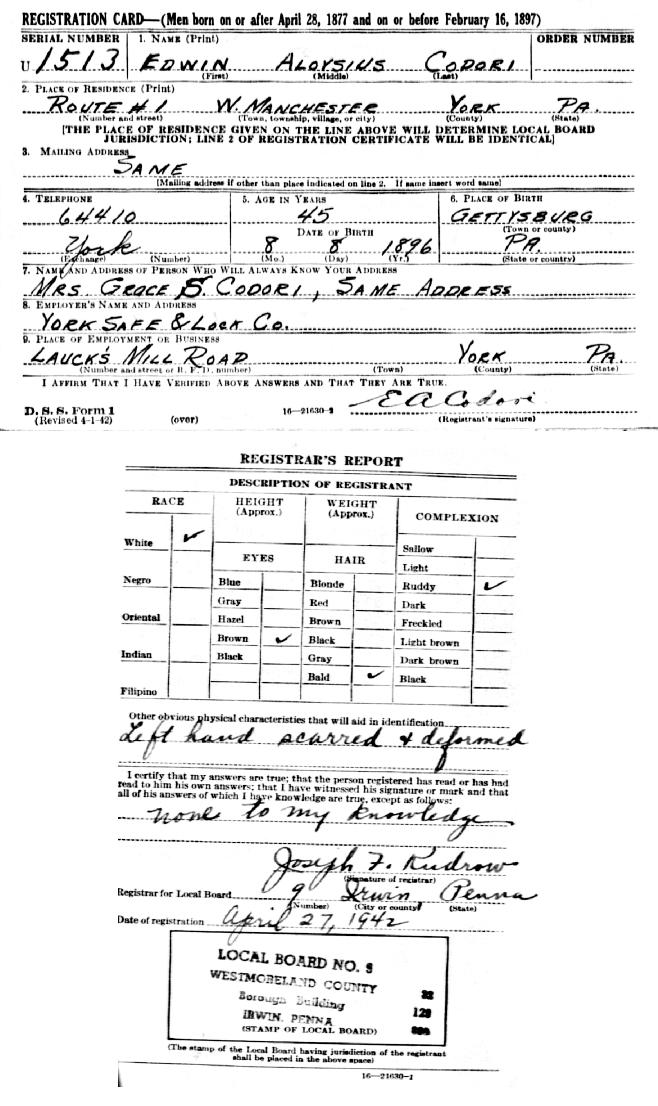 REGISTRATION CARD—(Men born on or after April 28, 1877 and on or before February 16, 1897)
SERIAL NUMBER 1. NAME (Print) ORDER NUMBER
U 1513 EDWIN ALOYSIUS CODORI
(First) (Middle) (Last)
2. PLACE OF RESIDENCE (Print)
ROUTE #1 W. MANCHESTER YORK PA.
(Number and street) (Town, township, village, or city) (County) (State)
[THE PLACE OF RESIDENCE GIVEN ON THE LINE ABOVE WILL DETERMINE LOCAL BOARD
JURISDICTION; LINE 2 OF REGISTRATION CERTIFICATE WILL BE IDENTICAL]
3. MAILING ADDRESS
SAME
[Mailing address if other than place indicated on line 2. If same insert word same]
4. TELEPHONE 5. AGE IN YEARS 6. PLACE OF BIRTH
64410 45 GETTYSBURG
DATE OF BIRTH (Town or county)
York 8 8 1896 PA.
(Exchange) (Number) (Mo.) (Day) (Yr.) (State or country)
7. NAME AND ADDRESS OF PERSON WHO WILL ALWAYS KNOW YOUR ADDRESS
MRS. GRACE S. CODORI, SAME ADDRESS
8. EMPLOYER'S NAME AND ADDRESS
YORK SAFE & LOCK CO.
9. PLACE OF EMPLOYMENT OR BUSINESS
LAUCK'S MILL ROAD YORK PA.
(Number and street or R. F. D. number) (Town) (County) (State)
I AFFIRM THAT I HAVE VERIFIED ABOVE ANSWERS AND THAT THEY ARE TRUE.
E A Codori
D. S. S. Form 1 16—21630-2
(Revised 4-1-42) (over) (Registrant's signature)
REGISTRAR'S REPORT
DESCRIPTION OF REGISTRANT
RACE HEIGHT (Approx.) WEIGHT (Approx.) COMPLEXION
White ✓ Sallow
EYES HAIR Light
Negro Blue Blonde Ruddy ✓
Gray Red Dark
Oriental Hazel Brown Freckled
Brown ✓ Black Light brown
Indian Black Gray Dark brown
Bald ✓ Black
Filipino
Other obvious physical characteristics that will aid in identification
Left hand scarred & deformed
I certify that my answers are true; that the person registered has read or has had
read to him his own answers; that I have witnessed his signature or mark and that
all of his answers of which I have knowledge are true, except as follows:
none to my knowledge
Joseph F. Rudrow
(Signature of registrar)
Registrar for Local Board 9 Irwin, Penna
(Number) (City or county) (State)
Date of registration April 27, 1942
LOCAL BOARD NO. 9
WESTMORELAND COUNTY
Borough Building
129
IRWIN, PENNA
(STAMP OF LOCAL BOARD)
(The stamp of the Local Board having jurisdiction of the registrant
shall be placed in the above space)
16—21630-1